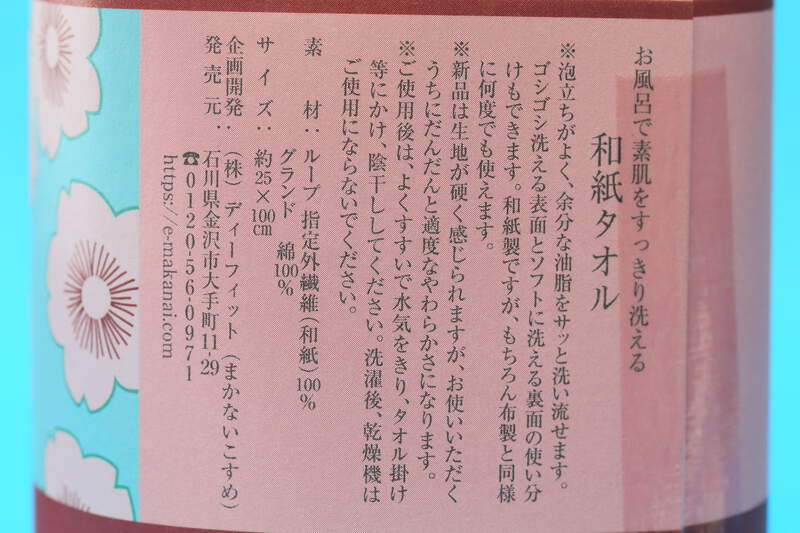 お風呂で素肌をすっきり洗える
和紙タオル
※泡立ちがよく、余分な油脂をサッと洗い流せます。
ゴシゴシ洗える表面とソフトに洗える裏面の使い分
けもできます。和紙製ですが、もちろん布製と同様
に何度でも使えます。
※新品は生地が硬く感じられますが、お使いいただく
うちにだんだんと適度なやわらかさになります。
※ご使用後は、よくすすいで水気をきり、タオル掛け
等にかけ、陰干ししてください。洗濯後、乾燥機は
ご使用にならないでください。
素 材：ループ 指定外繊維（和紙）100％
グランド 綿100％
サイズ：約25×100㎝
企画開発：（株）ディーフィット（まかないこすめ）
発売元：石川県金沢市大手町11-29
☎0120-56-0971
https://e-makanai.com